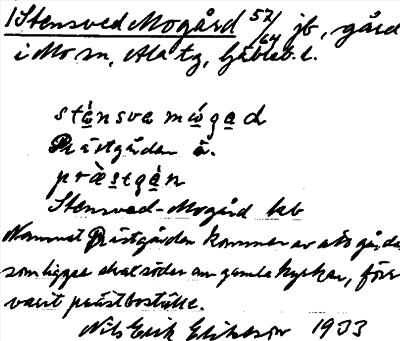 1 Stensved Mogård 57/64 jb, gård
i Mo sn, Ala tg, Gävleb. l.
stènsve mógad
Prästgården ä.
præstgàn
Stensved-Mogård
Namnet Prästgården kommer av att gården
som ligger strax söder om gamla kyrkan, förr
varit prästboställe.
Nils Erik Eriksson 1933